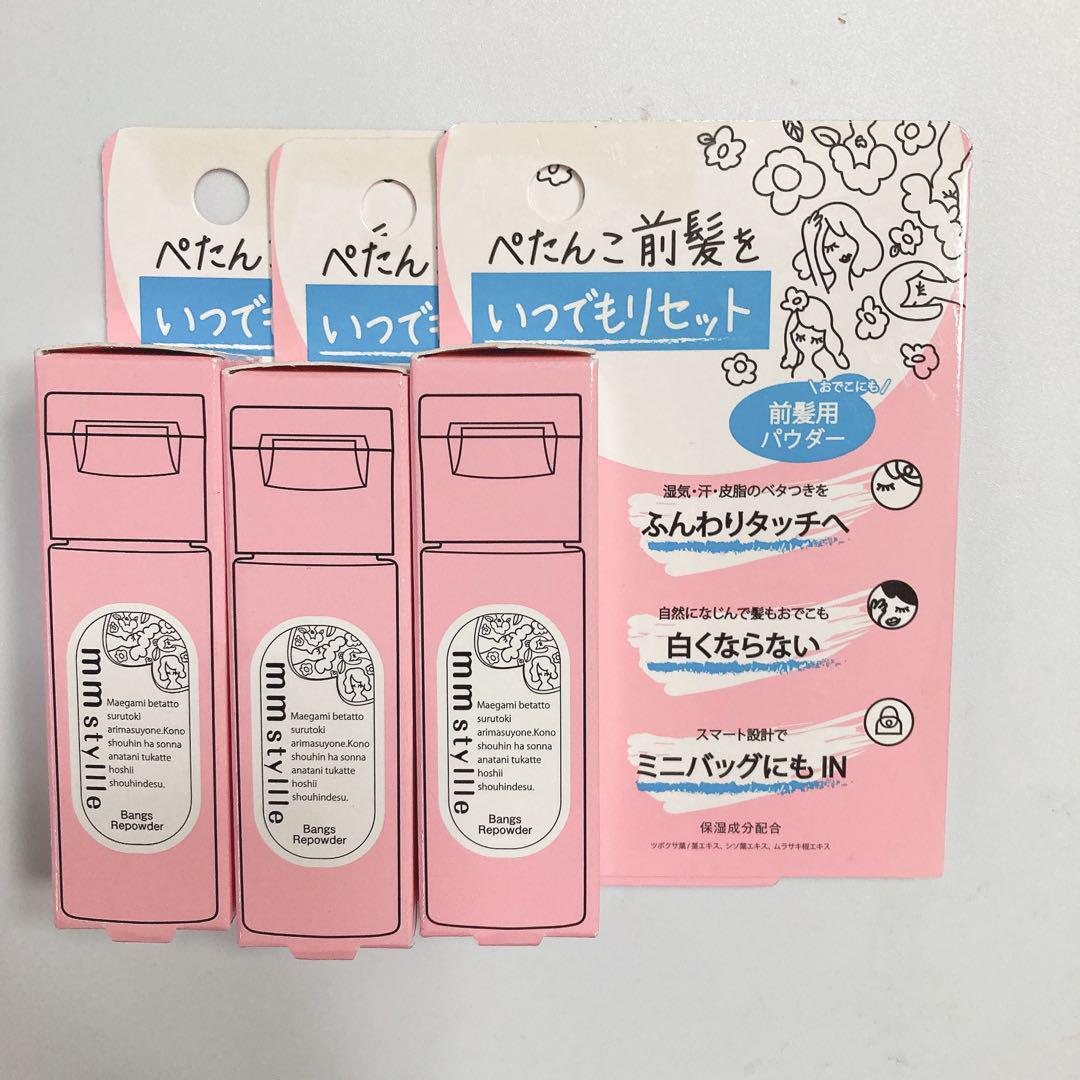 ぺたん
いつで
ぺたん
いつで
ぺたんこ前髪を
いつでもリセット
\おでこにも/
前髪用
パウダー
湿気・汗・皮脂のベタつきを
ふんわりタッチへ
自然になじんで髪もおでこも
白くならない
スマート設計で
ミニバッグにも IN
保湿成分配合
ツボクサ葉/茎エキス、シソ葉エキス、ムラサキ根エキス
mmstyllle
Maegami betatto
surutoki
arimasuyone.Kono
shouhin ha sonna
anatani tukatte
hoshii
shouhindesu.
Bangs
Repowder
mmstyllle
Maegami betatto
surutoki
arimasuyone.Kono
shouhin ha sonna
anatani tukatte
hoshii
shouhindesu.
Bangs
Repowder
mmstyllle
Maegami betatto
surutoki
arimasuyone.Kono
shouhin ha sonna
anatani tukatte
hoshii
shouhindesu.
Bangs
Repowder